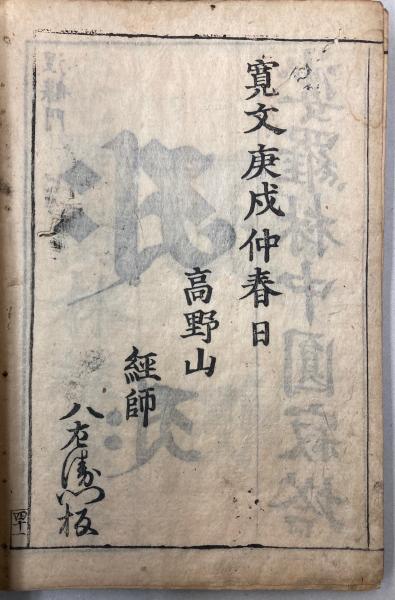 寛文庚戌仲春日
高野山
經師
八左衛門板
四十一